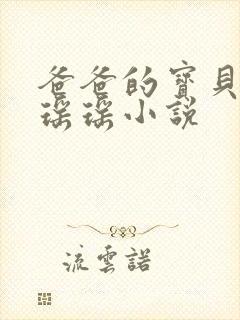 爸爸的寶貝
瑶瑶小說
流雲諾